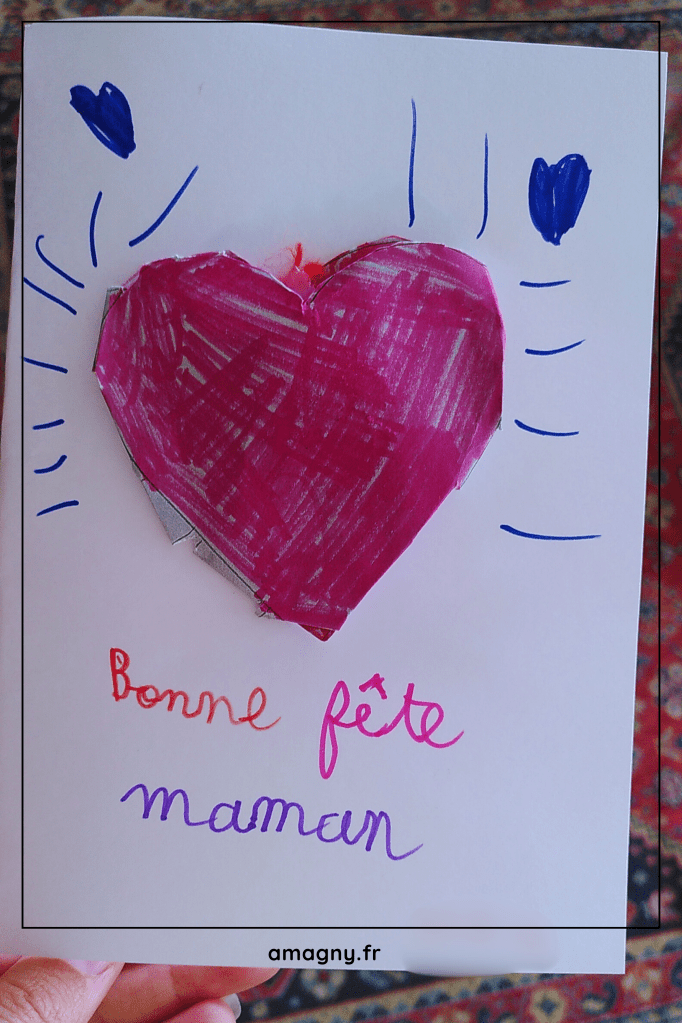 Bonne fête
maman
amagny.fr